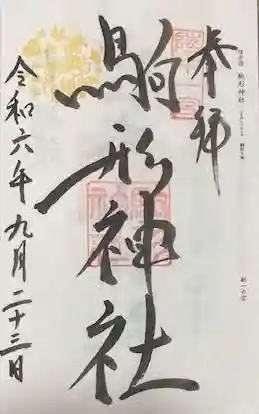 奉拝
駒形神社
令和六年九月二十三日